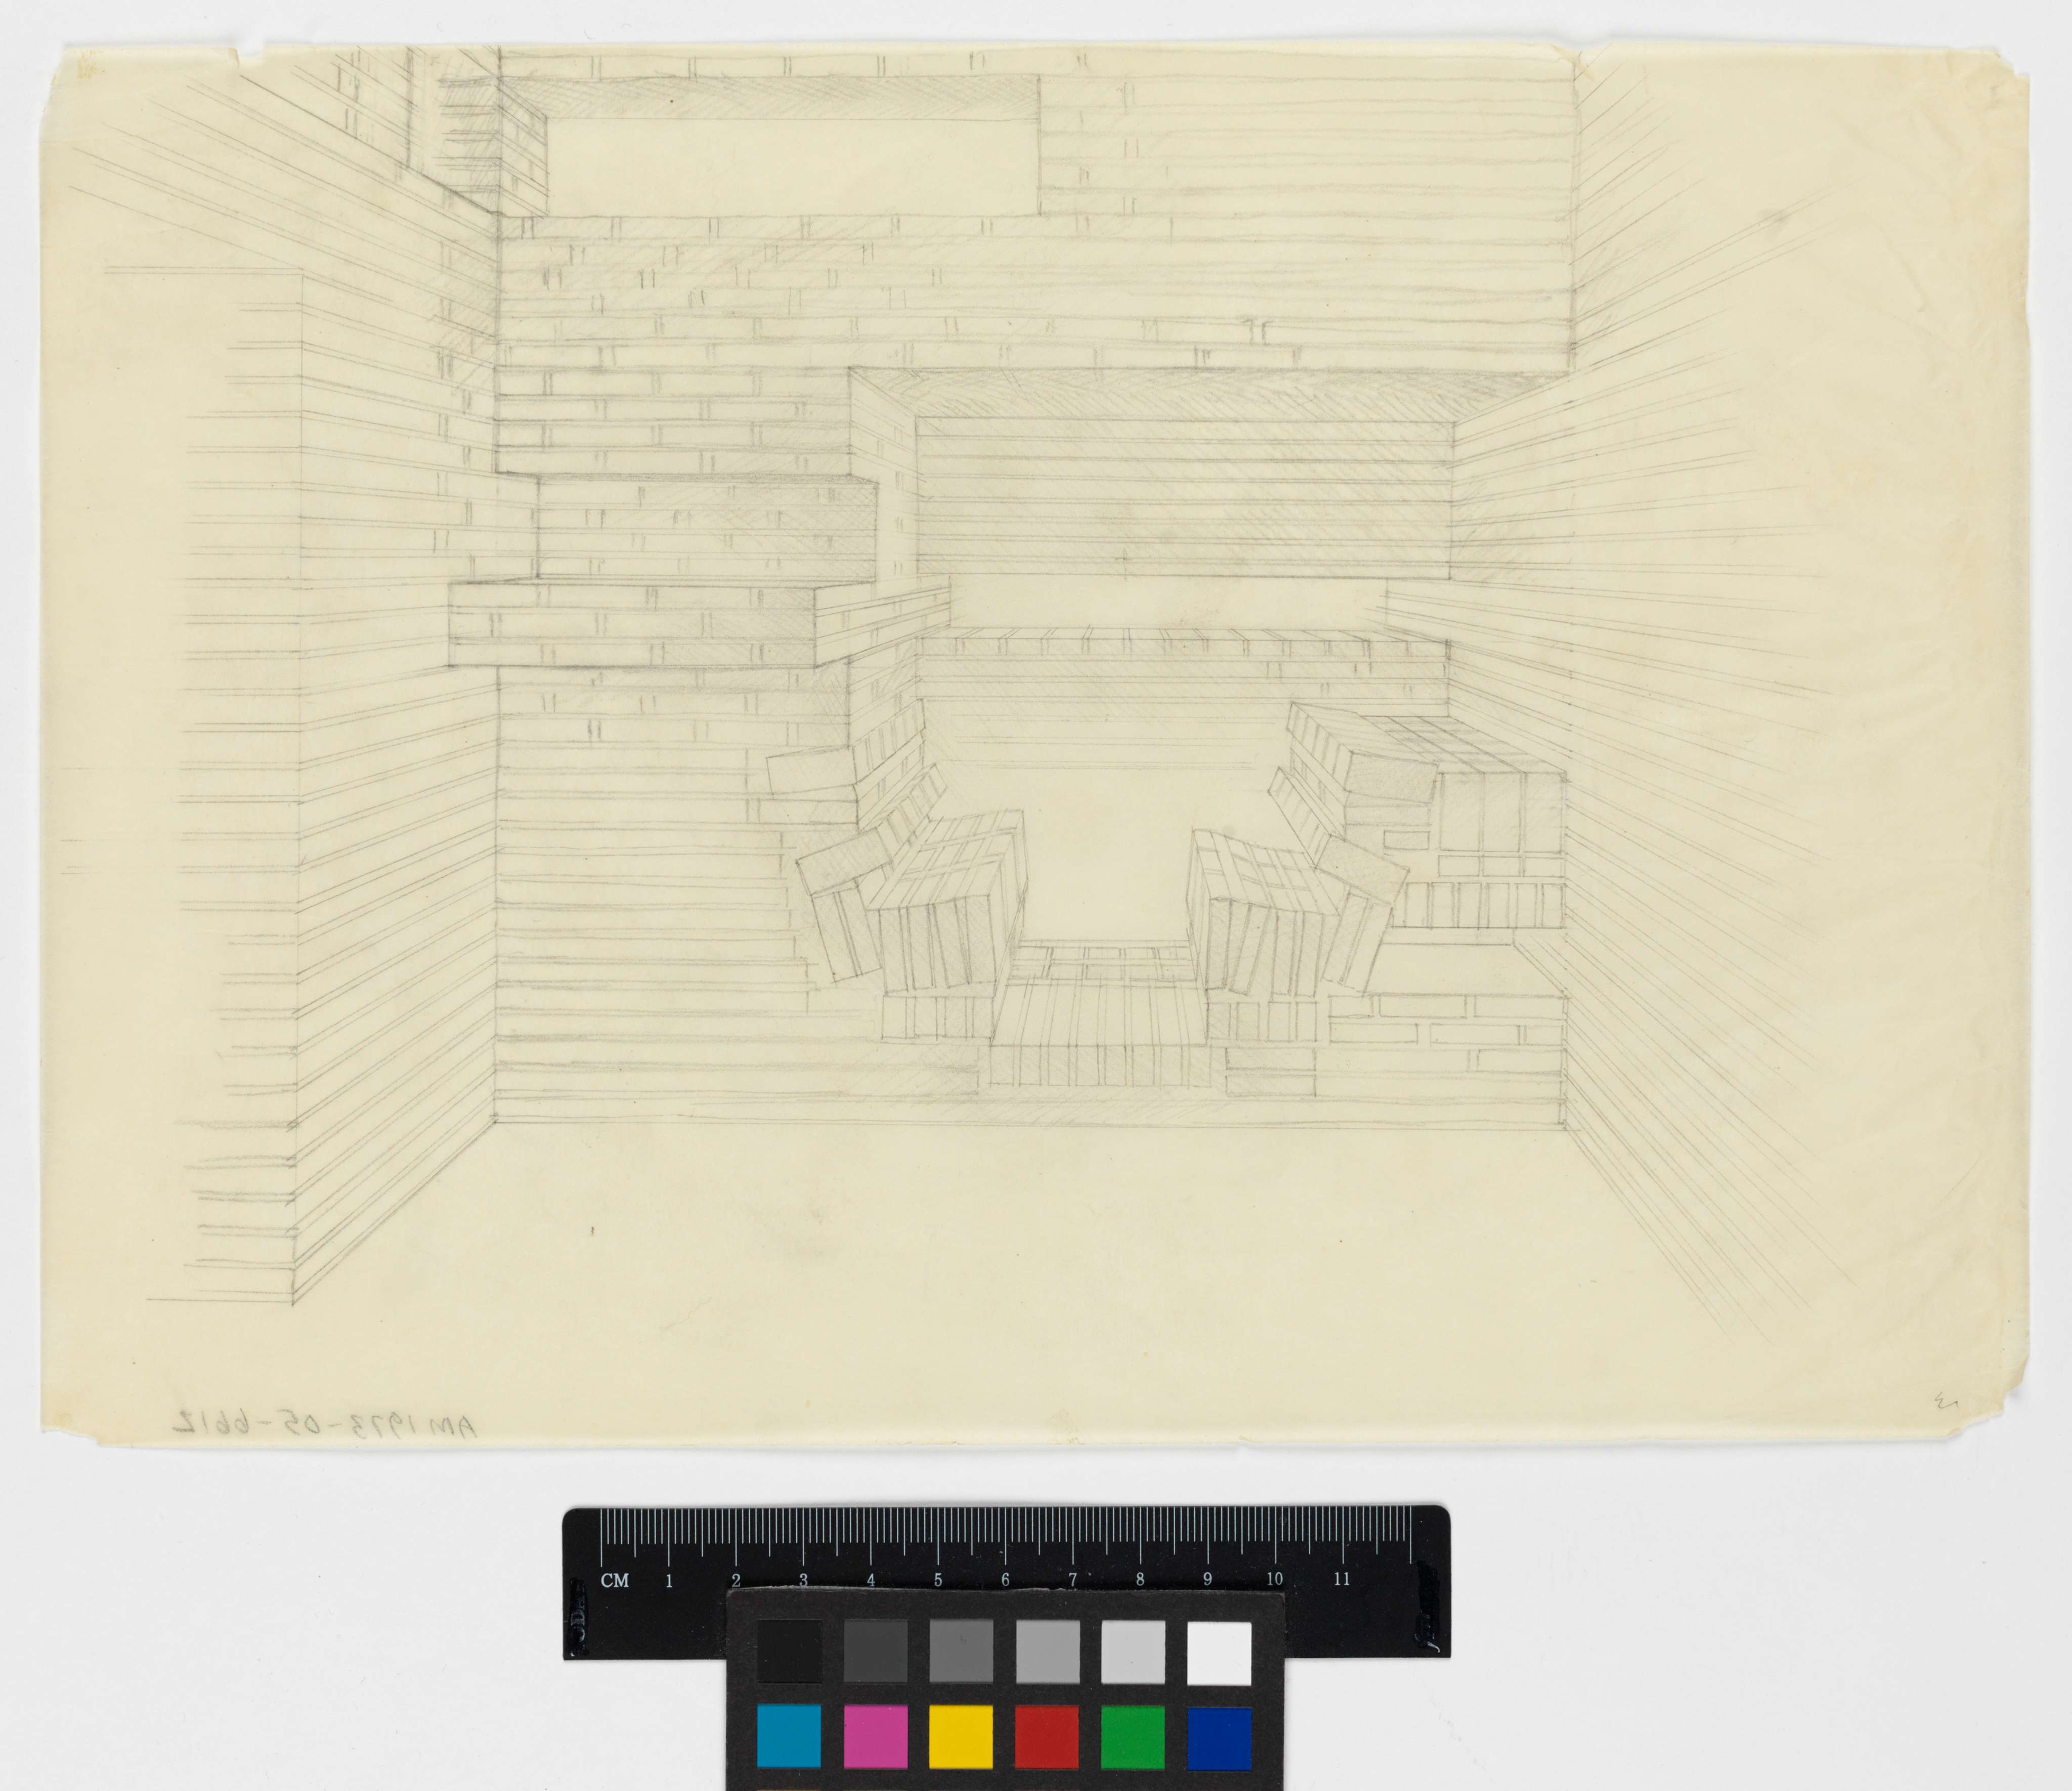 AM 1973-05-6612
CM 1 2 3 4 5 6 7 8 9 10 11